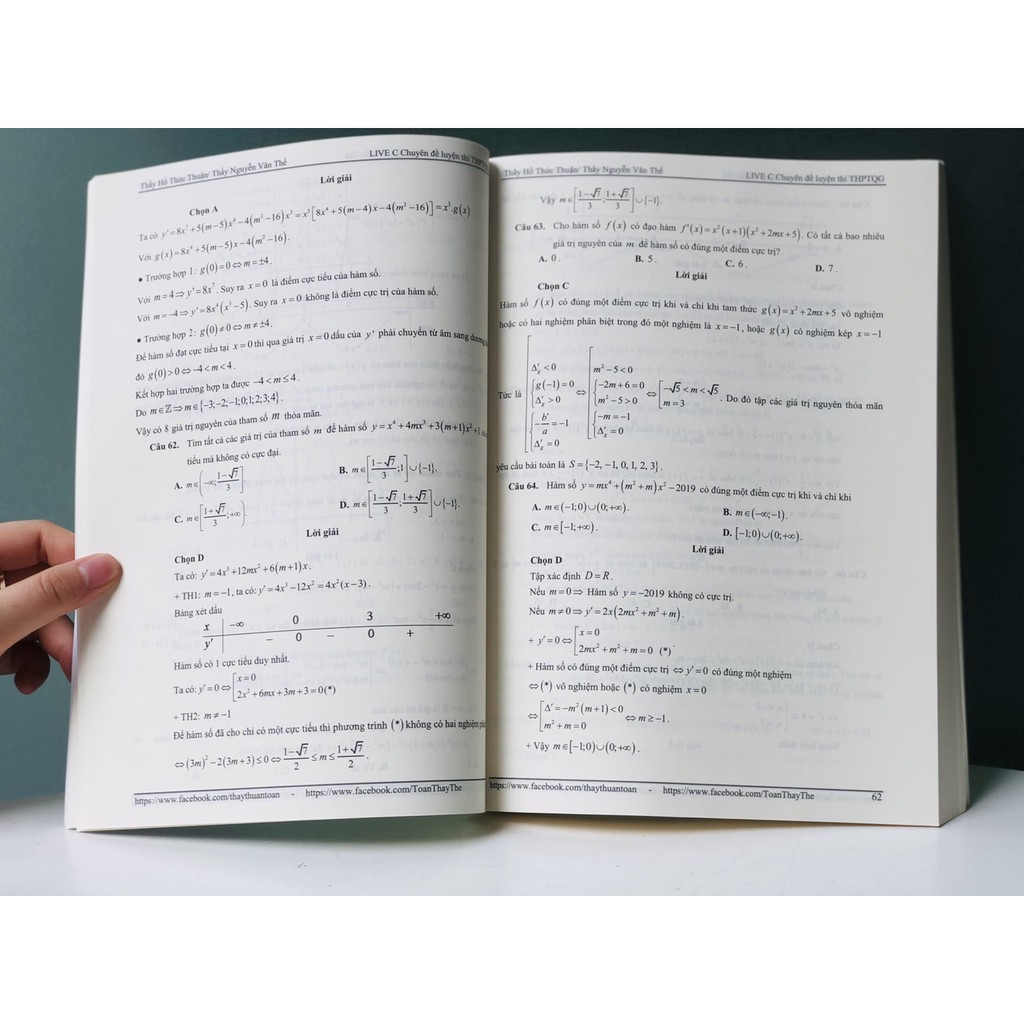 Thầy Hồ Thức Thuận/ Thầy Nguyễn Văn Thế LIVE C Chuyên đề luyện thi THPTQ
Lời giải
Chọn A
Ta có y'=8x⁷+5(m−5)x⁴−4(m²−16)x³=x³[8x⁴+5(m−4)x−4(m²−16)]=x³.g(x)
Với g(x)=8x⁴+5(m−5)x−4(m²−16).
● Trường hợp 1: g(0)=0⇔m=±4.
Với m=4⇒y'=8x⁷. Suy ra x=0 là điểm cực tiểu của hàm số.
Với m=−4⇒y'=8x⁴(x³−5). Suy ra x=0 không là điểm cực trị của hàm số.
● Trường hợp 2: g(0)≠0⇔m≠±4.
Để hàm số đạt cực tiểu tại x=0 thì qua giá trị x=0 dấu của y' phải chuyển từ âm sang dương
đó g(0)>0⇔−4<m<4.
Kết hợp hai trường hợp ta được −4<m≤4.
Do m∈ℤ⇒m∈{−3;−2;−1;0;1;2;3;4}.
Vậy có 8 giá trị nguyên của tham số m thỏa mãn.
Câu 62. Tìm tất cả các giá trị của tham số m để hàm số y=x⁴+4mx³+3(m+1)x²+1
tiểu mà không có cực đại.
A. m∈(−∞;(1−√7)/3] B. m∈[(1−√7)/3;1]∪{−1}.
C. m∈[(1+√7)/3;+∞). D. m∈[(1−√7)/3;(1+√7)/3]∪{−1}.
Lời giải
Chọn D
Ta có: y'=4x³+12mx²+6(m+1)x.
+ TH1: m=−1, ta có: y'=4x³−12x²=4x²(x−3).
Bảng xét dấu
x −∞ 0 3 +∞
y' − 0 − 0 +
Hàm số có 1 cực tiểu duy nhất.
Ta có: y'=0⇔[x=0
2x²+6mx+3m+3=0(*)
+ TH2: m≠−1
Để hàm số đã cho chỉ có một cực tiểu thì phương trình (*) không có hai nghiệm
⇔(3m)²−2(3m+3)≤0⇔(1−√7)/2≤m≤(1+√7)/2.
https://www.facebook.com/thaythuantoan - https://www.facebook.com/ToanThayThe
Thầy Hồ Thức Thuận/ Thầy Nguyễn Văn Thế LIVE C Chuyên đề luyện thi THPTQG
Vậy m∈[(1−√7)/3;(1+√7)/3]∪{−1}.
Câu 63. Cho hàm số f(x) có đạo hàm f'(x)=x²(x+1)(x²+2mx+5). Có tất cả bao nhiêu
giá trị nguyên của m để hàm số có đúng một điểm cực trị?
A. 0. B. 5. C. 6. D. 7.
Lời giải
Chọn C
Hàm số f(x) có đúng một điểm cực trị khi và chỉ khi tam thức g(x)=x²+2mx+5 vô nghiệm
hoặc có hai nghiệm phân biệt trong đó một nghiệm là x=−1, hoặc g(x) có nghiệm kép x=−1
Tức là [Δ'g<0; {g(−1)=0, Δ'g>0; {−b'/a=−1, Δ'g=0 ⇔ [m²−5<0; {−2m+6=0, m²−5>0; {−m=−1, Δ'g=0 ⇔ [−√5<m<√5; m=3. Do đó tập các giá trị nguyên thỏa mãn
yêu cầu bài toán là S={−2, −1, 0, 1, 2, 3}.
Câu 64. Hàm số y=mx⁴+(m²+m)x²−2019 có đúng một điểm cực trị khi và chỉ khi
A. m∈(−1;0)∪(0;+∞). B. m∈(−∞;−1).
C. m∈[−1;+∞). D. [−1;0)∪(0;+∞).
Lời giải
Chọn D
Tập xác định D=R.
Nếu m=0⇒ Hàm số y=−2019 không có cực trị.
Nếu m≠0⇒y'=2x(2mx²+m²+m).
+ y'=0⇔[x=0
2mx²+m²+m=0 (*).
+ Hàm số có đúng một điểm cực trị ⇔y'=0 có đúng một nghiệm
⇔(*) vô nghiệm hoặc (*) có nghiệm x=0
⇔[Δ'=−m²(m+1)<0
m²+m=0 ⇔m≥−1.
+ Vậy m∈[−1;0)∪(0;+∞).
https://www.facebook.com/thaythuantoan - https://www.facebook.com/ToanThayThe 62